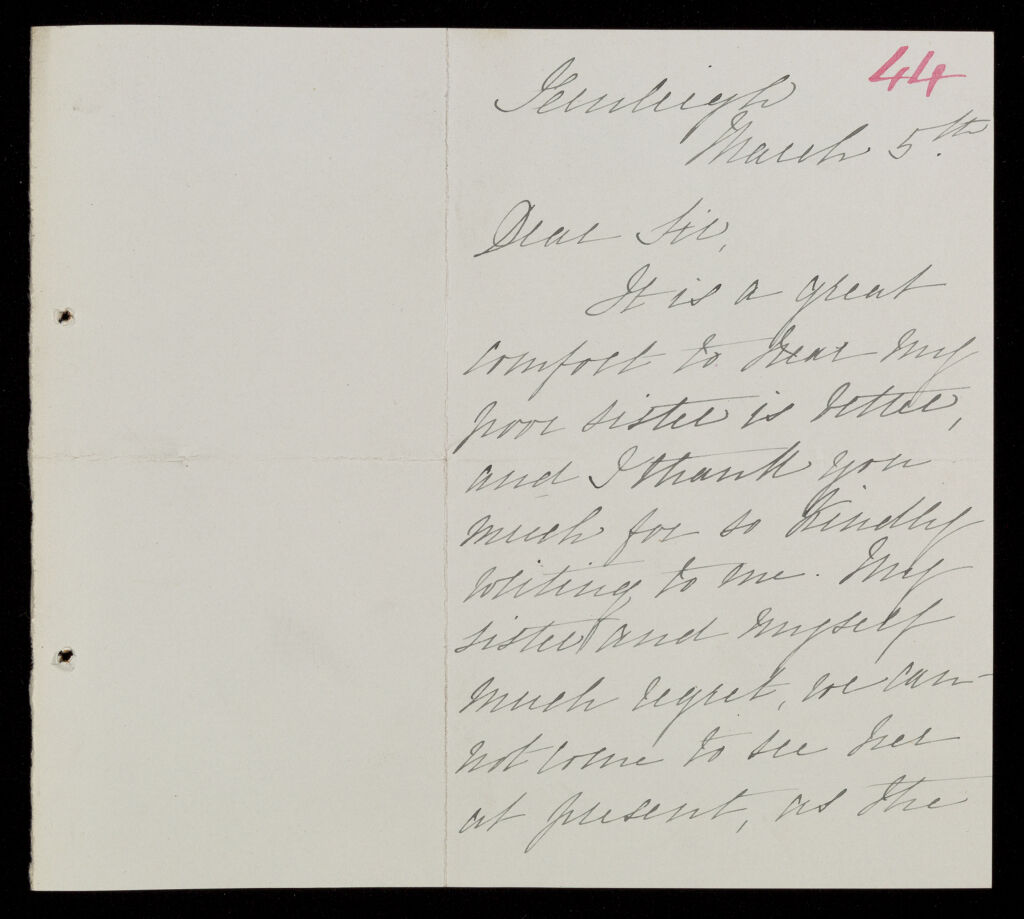 44
March 5th.
Dear Sir,
It is a great
comfort to hear my
poor sister is better,
and I thank you
much for so kindly
writing to me. My
sister and myself
much regret, we can-
not come to see her
at present, as the